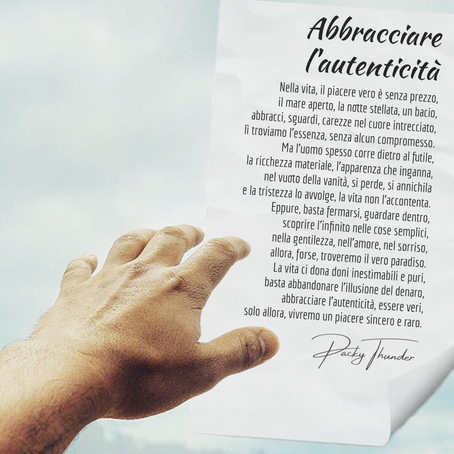 Abbracciare
l'autenticità
Nella vita, il piacere vero è senza prezzo,
il mare aperto, la notte stellata, un bacio,
abbracci, sguardi, carezze nel cuore intrecciato,
lì troviamo l'essenza, senza alcun compromesso.
Ma l'uomo spesso corre dietro al futile,
la ricchezza materiale, l'apparenza che inganna,
nel vuoto della vanità, si perde, si annichila
e la tristezza lo avvolge, la vita non l'accontenta.
Eppure, basta fermarsi, guardare dentro,
scoprire l'infinito nelle cose semplici,
nella gentilezza, nell'amore, nel sorriso,
allora, forse, troveremo il vero paradiso.
La vita ci dona doni inestimabili e puri,
basta abbandonare l'illusione del denaro,
abbracciare l'autenticità, essere veri,
solo allora, vivremo un piacere sincero e raro.
Packy Thunder